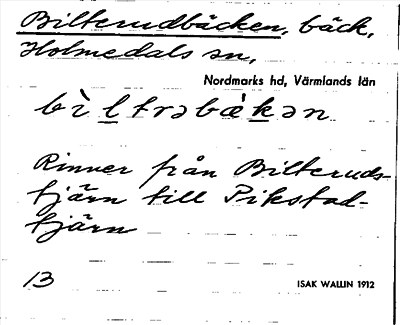 Bilterudbäcken, bäck,
Holmedals sn,
Nordmarks hd, Värmlands län
bìltrəbäkən
Rinner från Bilteruds-
tjärn till Pikstad-
tjärn
13 ISAK WALLIN 1912